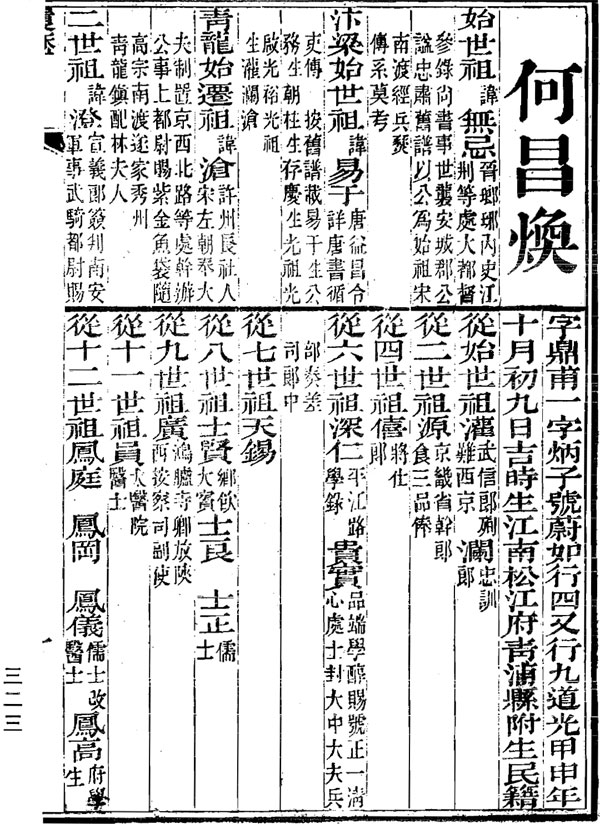 何昌煥
字鼎甫一字炳子號蔚如行四又行九道光甲申年
十月初九日吉時生江南松江府青浦縣附生民籍
始世祖諱無忌晉瑯琊內史江
荊等處大都督
參錄尚書事世襲安城郡公
諡忠肅舊譜以公為始祖宋
南渡經兵燹
傳系莫考
汴梁始世祖諱易于唐益昌令
詳唐書循
吏傳 按舊譜載易于生公
務生朝柱生存慶生光祖光
啟光裕光祖
生灌瀾滄
青龍始遷祖諱滄許州長社人
宋左朝奉大
夫制置京西北路等處幹辦
公事上都尉賜紫金魚袋隨
高宗南渡遂家秀州
青龍鎮配林夫人
二世祖諱澄宣義郎簽判南安
軍事武騎都尉賜
從始世祖灌武信郎殉難西京 瀾忠訓郎
從二世祖源京畿省幹郎食三品俸
從四世祖僖將仕郎
從六世祖深仁平江路學錄 貴實品端學醇賜號正一清
心處士封大中大夫兵
部奏差
司郎中
從七世祖天錫
從八世祖士賢鄉飲大賓 士良 士正儒士
從九世祖廣鴻臚寺卿放陝西按察司副使
從十一世祖員太醫院醫士
從十二世祖鳳庭 鳳岡 鳳儀儒士改醫士 鳳高府學生
三二三